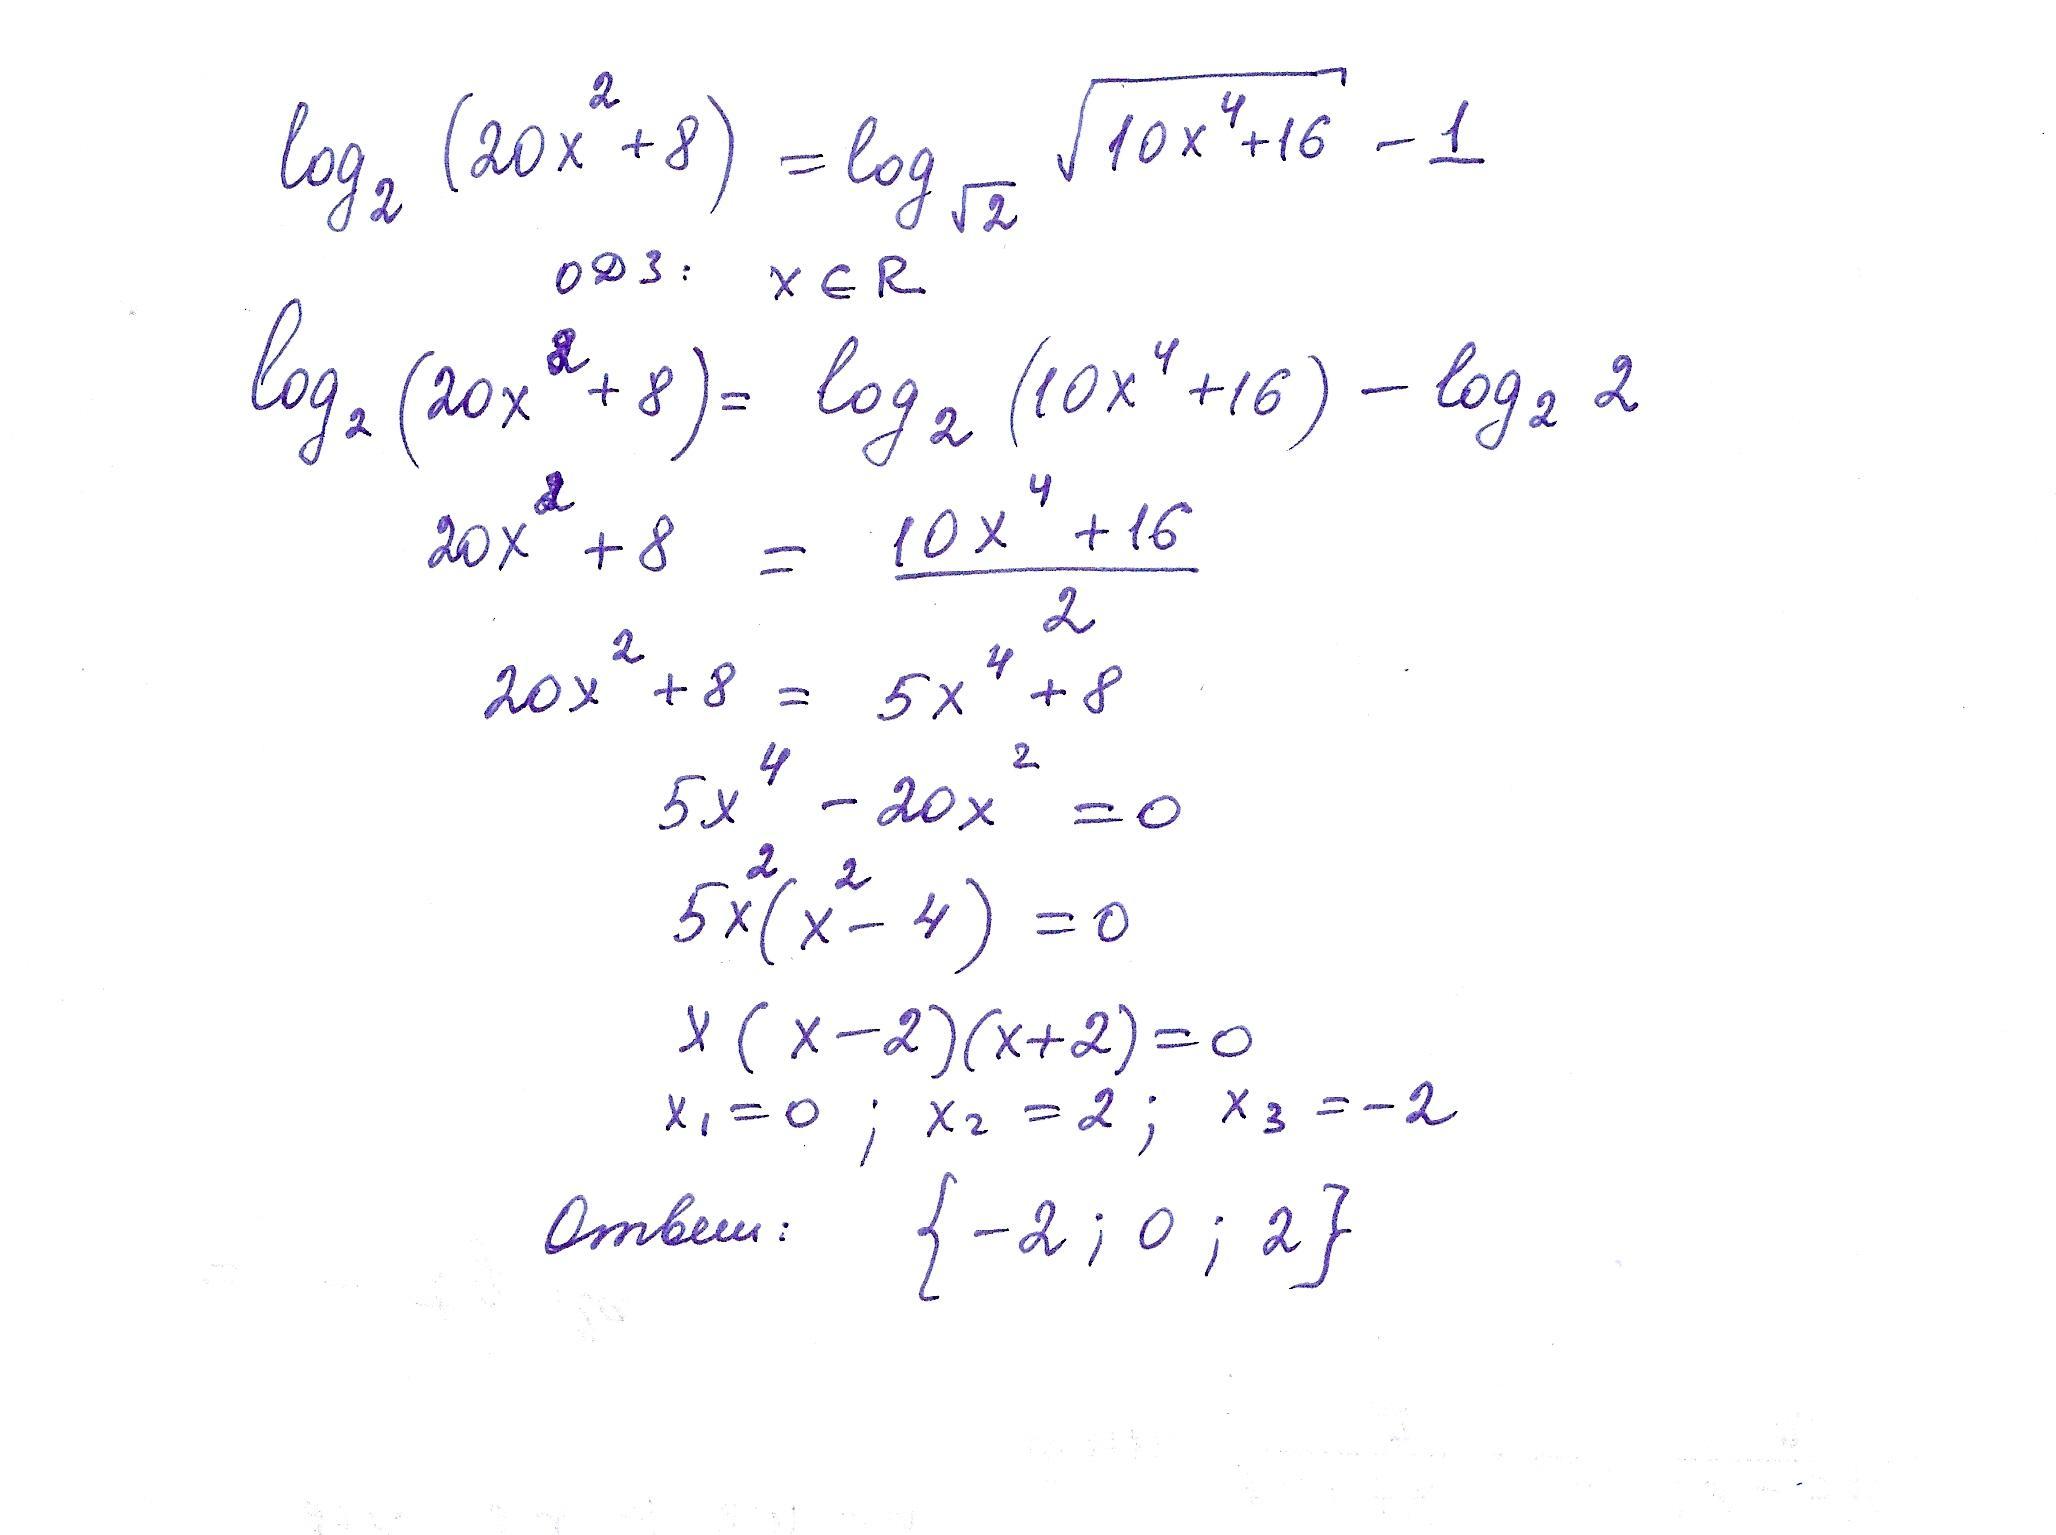 log₂ (20x² + 8) = log_√2 √(10x⁴+16) - 1
ОДЗ: x ∈ R
log₂ (20x² + 8) = log₂ (10x⁴ + 16) - log₂ 2
20x² + 8 = (10x⁴ + 16)/2
20x² + 8 = 5x⁴ + 8
5x⁴ - 20x² = 0
5x²(x² - 4) = 0
x(x - 2)(x + 2) = 0
x₁ = 0 ; x₂ = 2 ; x₃ = -2
Ответ: {-2 ; 0 ; 2}